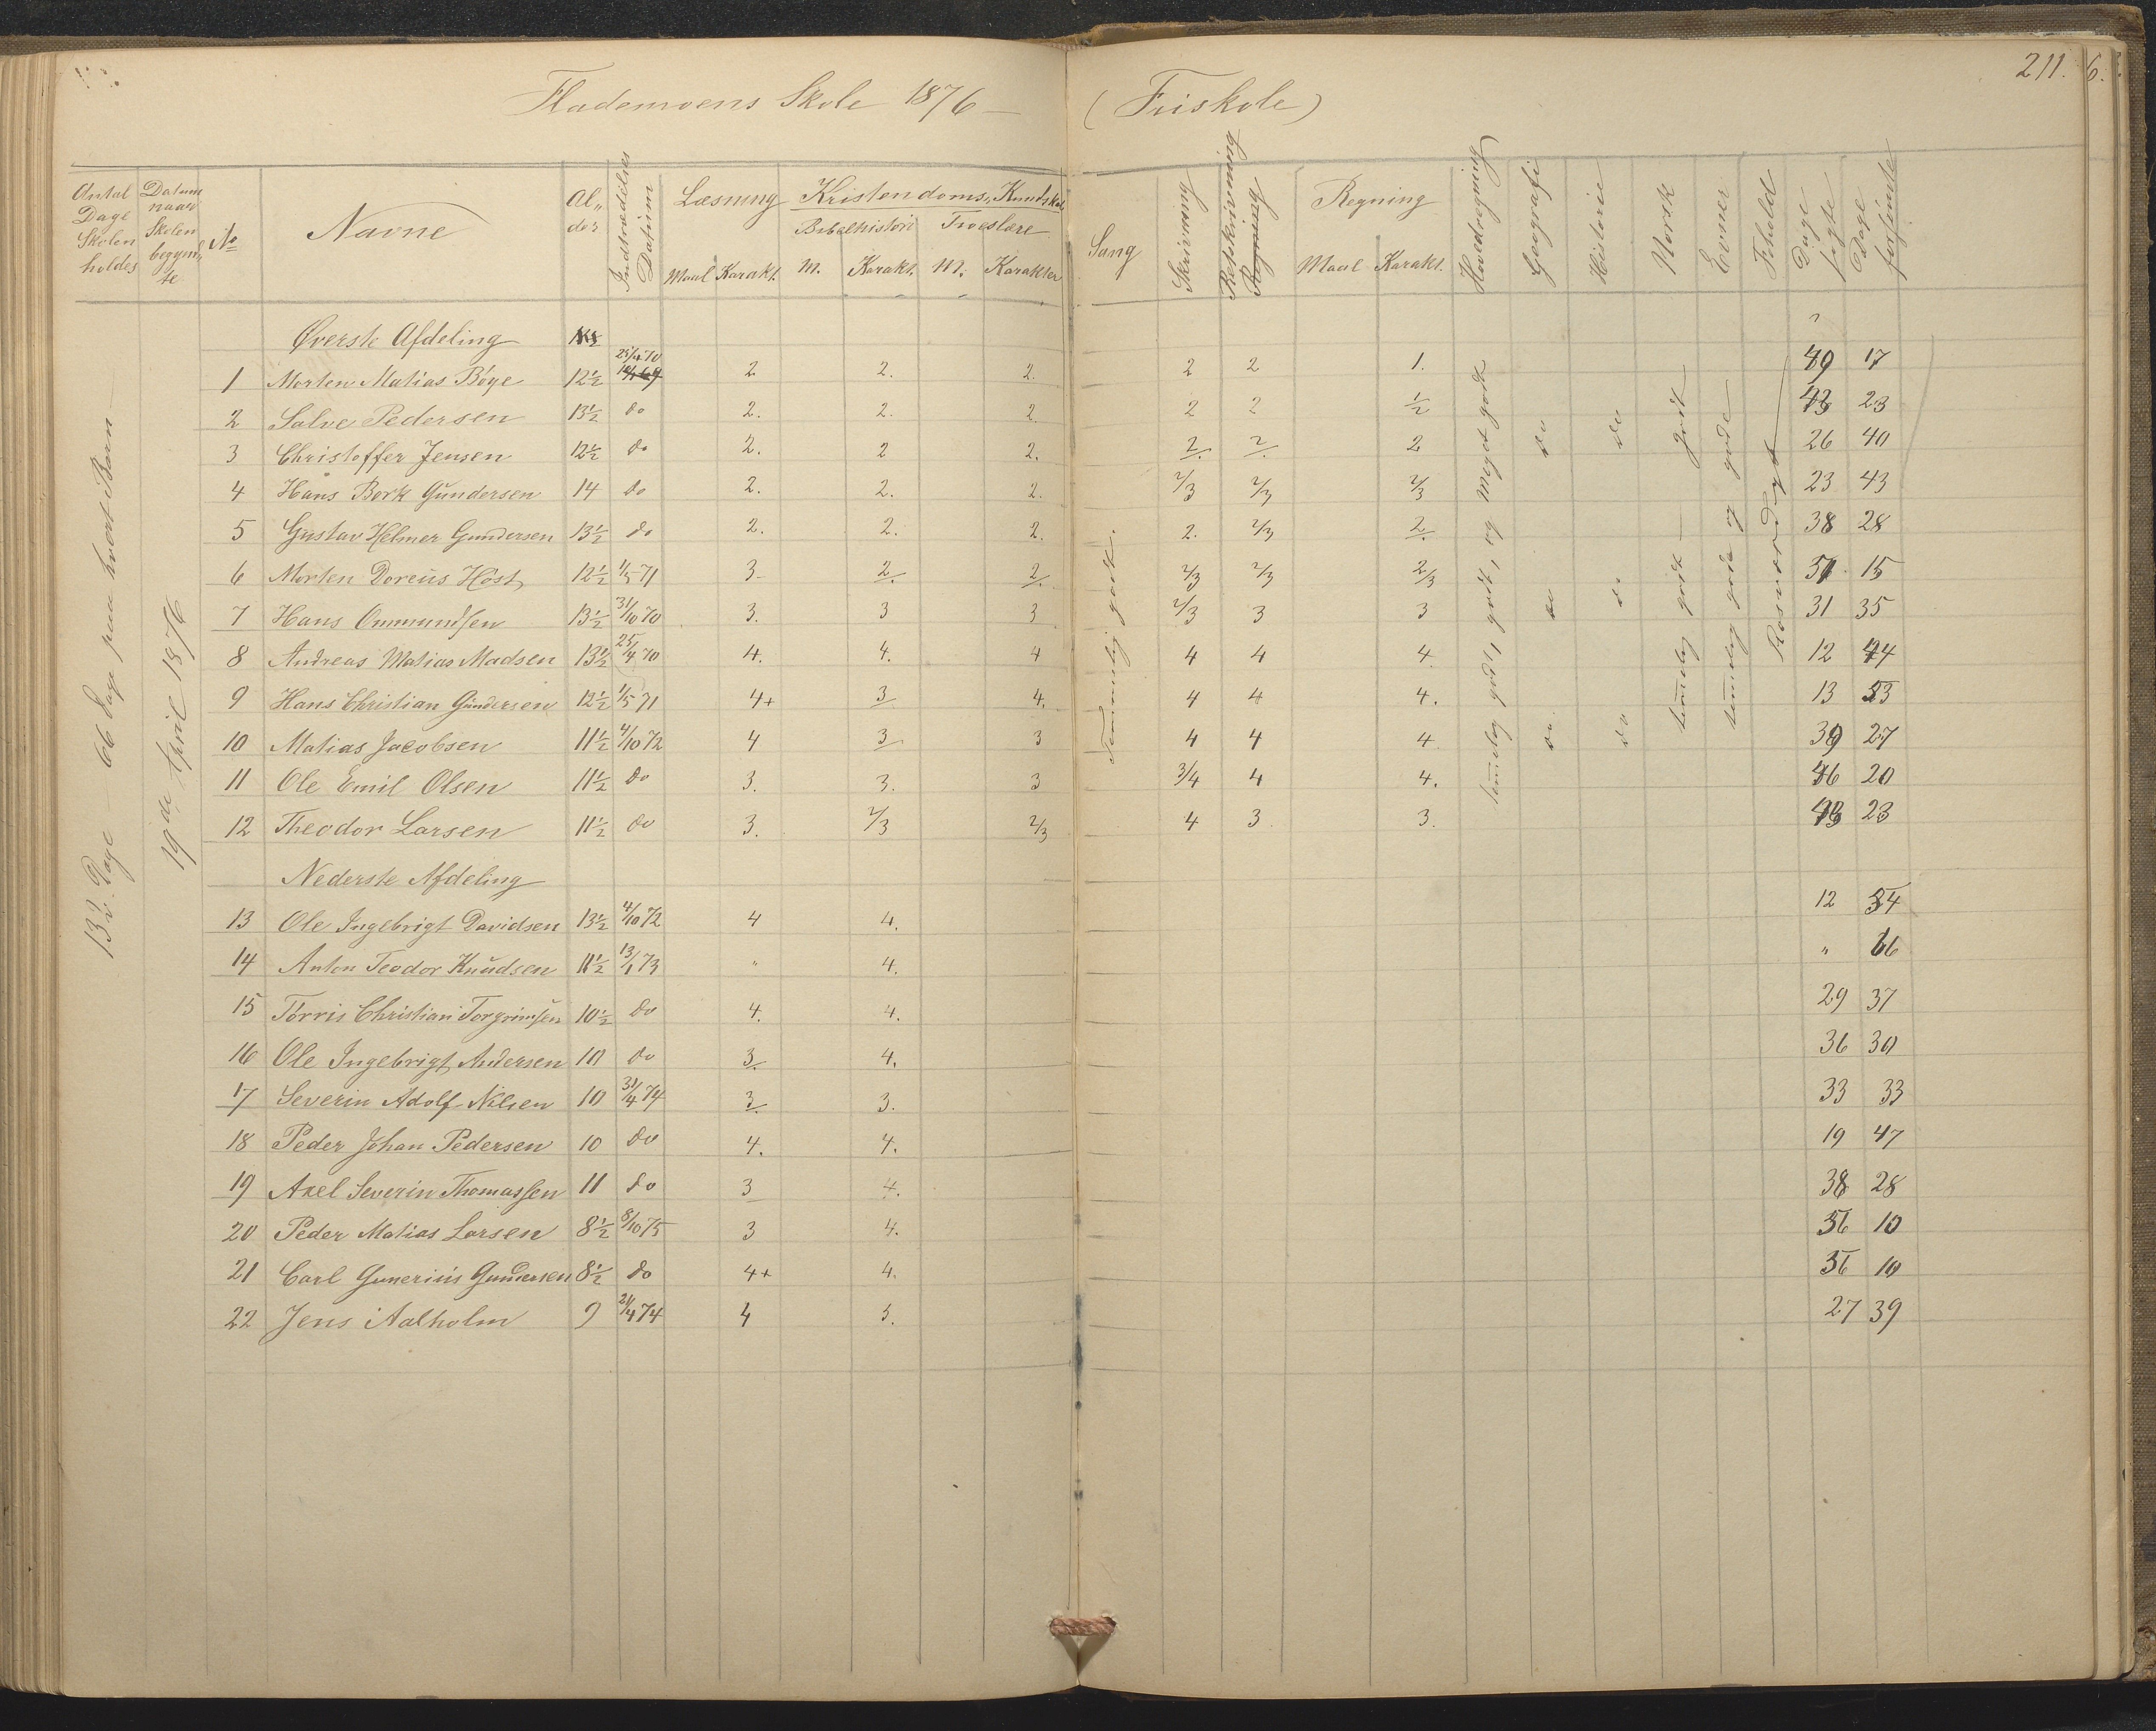 Flademoens Skole 1876 — (Friskole) 211. 6.
Antal Dage Skolen holdes
Datum naar Skolen begynd„te
No
Navne
Al„der
Indtrædelses Datum
Læsning Maal Karakt.
Kristendoms„Kundskab
Bibelhistori M. Karakt.
Troeslære M. Karakter
Sang
Skrivning
Retskrivning
Regning Maal Karakt.
Hovedregning
Geografi
Historie
Norsk
Evner
Forhold
Dage søgte
Dage forsømte
132 Dage 66 Dage paa hvert Barn
19de April 1876
Øverste Afdeling
1 Morten Matias Böye 12½ 25/4 70 2 2. 2. 2 2 1. 49 17
2 Salve Pedersen 13½ do 2. 2. 2. 2 2 ½ 43 23
3 Christoffer Jensen 12½ do 2. 2 2. 2. 2. 2 26 40
4 Hans Bork Gundersen 14 do 2. 2. 2. 2/3 2/3 2/3 23 43
5 Gustav Helmer Gundersen 13½ do 2. 2. 2. 2. 2/3 2. 38 28
6 Morten Doreus Höst 12½ 1/5 71 3 2. 2. 2/3 2/3 2/3 51 15
7 Hans Ommundsen 13½ 31/10 70 3. 3 3 2/3 3 3 31 35
8 Andreas Matias Madsen 13½ 25/4 70 4. 4. 4 4 4 4. 12 44
9 Hans Christian Gundersen 12½ 1/5 71 4+ 3 4. 4 4 4. 13 53
10 Matias Jacobsen 11½ 4/10 72 4 3 3 4 4 4 39 27
11 Ole Emil Olsen 11½ do 3. 3. 3 3/4 4 4. 46 20
12 Theodor Larsen 11½ do 3. 2/3 2/3 4 3. 3. 43 23
Temmelig godt.
tem̄elig godt, godt, og meget godt
do do do
do do do
tem̄elig godt — godt
tem̄elig gode og gode
Rosværdigt
Nederste Afdeling
13 Ole Ingebrigt Davidsen 13½ 4/10 72 4 4. 12 54
14 Anton Teodor Knudsen 11½ 13/1 73 „ 4. „ 66
15 Törris Christian Torgrimsen 10½ do 4. 4. 29 37
16 Ole Ingebrigt Andersen 10 do 3. 4. 36 30
17 Severin Adolf Nilsen 10 31/4 74 3. 3. 33 33
18 Peder Johan Pedersen 10 do 4. 4. 19 47
19 Axel Severin Thomassen 11 do 3 4. 38 28
20 Peder Matias Larsen 8½ 8/10 75 3 4. 56 10
21 Carl Gunerius Gundersen 8½ do 4+ 4. 56 10
22 Jens Aalholm 9 21/4 74 4 3. 27 39